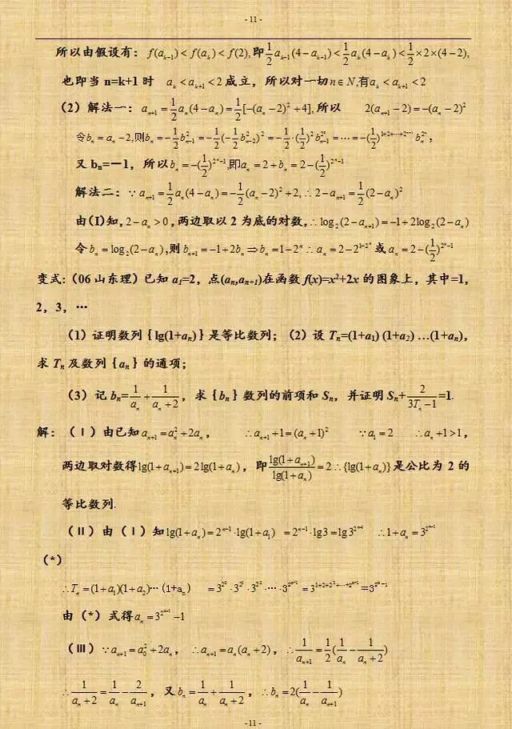 - 11 -
所以由假设有: f(a_{k-1})<f(a_k)<f(2), 即 \frac{1}{2}a_{k-1}(4-a_{k-1})<\frac{1}{2}a_k(4-a_k)<\frac{1}{2}×2×(4-2),
也即当 n=k+1 时 a_k<a_{k+1}<2 成立，所以对一切 n∈N,有 a_k<a_{k+1}<2
(2) 解法一: a_{n+1}=\frac{1}{2}a_n(4-a_n)=\frac{1}{2}[-(a_n-2)^2+4], 所以 2(a_{n+1}-2)=-(a_n-2)^2
令 b_n=a_n-2,则 b_n=-\frac{1}{2}b_{n-1}^2=-\frac{1}{2}(-\frac{1}{2}b_{n-2}^2)^2=-\frac{1}{2}·(\frac{1}{2})^2b_{n-1}^{2^2}=…=-(\frac{1}{2})^{1+2+…+2^{n-1}}b_n^{2^n},
又 b_n=－1，所以 b_n=-(\frac{1}{2})^{2^n-1},即 a_n=2+b_n=2-(\frac{1}{2})^{2^n-1}
解法二: ∵a_{n+1}=\frac{1}{2}a_n(4-a_n)=-\frac{1}{2}(a_n-2)^2+2,∴2-a_{n+1}=\frac{1}{2}(2-a_n)^2
由(I)知, 2-a_n>0, 两边取以 2 为底的对数, ∴log_2(2-a_{n+1})=-1+2log_2(2-a_n)
令 b_n=log_2(2-a_n), 则 b_{n+1}=-1+2b_n⇒b_n=1-2^n∴a_n=2-2^{1-2^n} 或 a_n=2-(\frac{1}{2})^{2^n-1}
变式:（06 山东理）已知 a_1=2，点(a_n,a_{n+1})在函数 f(x)=x^2+2x 的图象上，其中=1，
2，3，…
（1）证明数列{lg(1+a_n)}是等比数列；（2）设 T_n=(1+a_1)(1+a_2)…(1+a_n)，
求 T_n 及数列{a_n}的通项；
（3）记 b_n=\frac{1}{a_n}+\frac{1}{a_n+2}，求{b_n}数列的前项和 S_n，并证明 S_n+\frac{2}{3T_n-1}=1.
解:（Ⅰ）由已知 a_{n+1}=a_n^2+2a_n， ∴a_{n+1}+1=(a_n+1)^2 ∵a_1=2 ∴a_n+1>1，
两边取对数得 lg(1+a_{n+1})=2lg(1+a_n)，即 \frac{lg(1+a_{n+1})}{lg(1+a_n)}=2∴{lg(1+a_n)}是公比为 2 的
等比数列.
（II）由（Ⅰ）知 lg(1+a_n)=2^{n-1}·lg(1+a_1) =2^{n-1}·lg3=lg3^{2^{n-1}} ∴1+a_n=3^{2^{n-1}}
（*）
∴T_n=(1+a_1)(1+a_2)…(1+a_n) =3^{2^0}·3^{2^1}·3^{2^2}·…·3^{2^{n-1}}=3^{1+2+2^2+…+2^{n-1}}=3^{2^n-1}
由（*）式得 a_n=3^{2^{n-1}}-1
（III）∵a_{n+1}=a_n^2+2a_n，∴a_{n+1}=a_n(a_n+2)，∴\frac{1}{a_{n+1}}=\frac{1}{2}(\frac{1}{a_n}-\frac{1}{a_n+2})
∴\frac{1}{a_n+2}=\frac{1}{a_n}-\frac{2}{a_{n+1}}，又 b_n=\frac{1}{a_n}+\frac{1}{a_n+2}，∴b_n=2(\frac{1}{a_n}-\frac{1}{a_{n+1}})
- 11 -